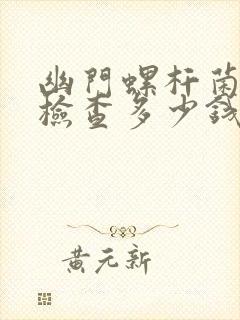 幽門螺杆菌
檢查多少錢
黄元新